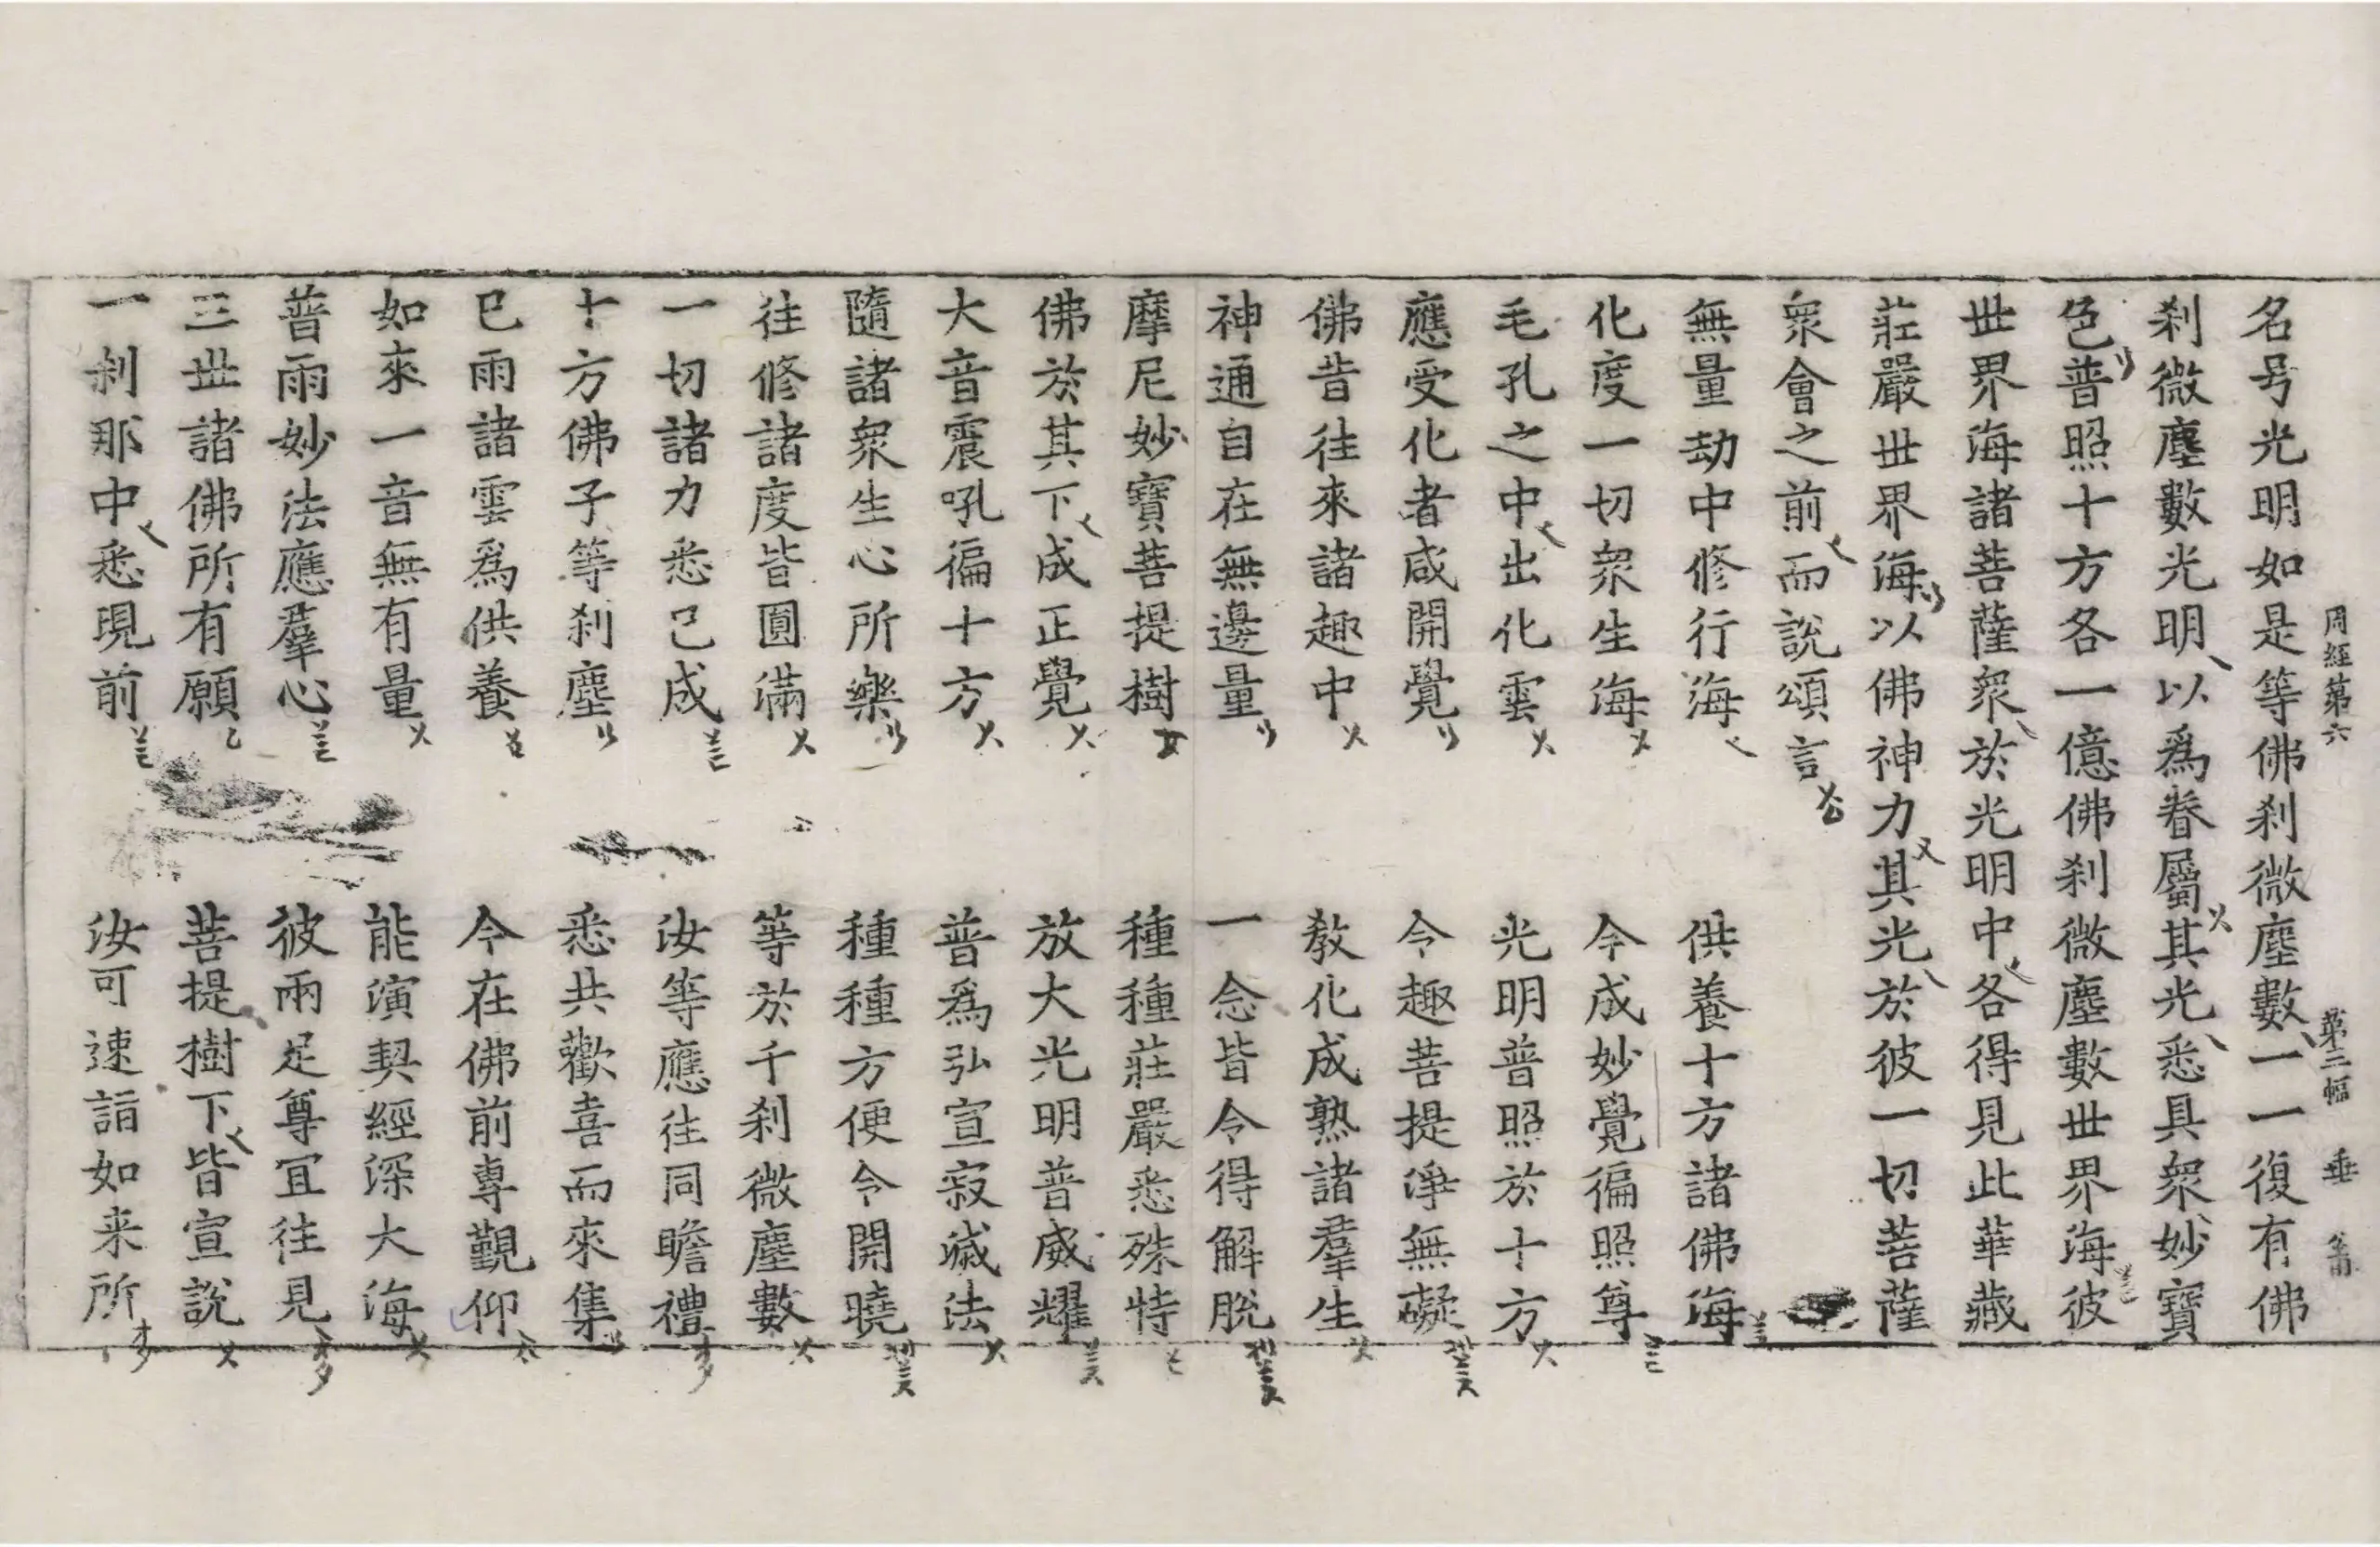 周經第六 第三幅 垂
名号光明如是等佛刹微塵數一一復有佛
刹微塵數光明以爲眷屬其光悉具衆妙寶
色普照十方各一億佛刹微塵數世界海彼
世界海諸菩薩衆於光明中各得見此華藏
莊嚴世界海以佛神力其光於彼一切菩薩
衆會之前而說頌言
無量劫中修行海 供養十方諸佛海
化度一切衆生海 今成妙覺徧照尊
毛孔之中出化雲 光明普照於十方
應受化者咸開覺 令趣菩提淨無礙
佛昔往來諸趣中 教化成熟諸羣生
神通自在無邊量 一念皆令得解脫
摩尼妙寶菩提樹 種種莊嚴悉殊特
佛於其下成正覺 放大光明普威耀
大音震吼徧十方 普爲弘宣寂滅法
隨諸衆生心所樂 種種方便令開曉
往修諸度皆圓滿 等於千刹微塵數
一切諸力悉已成 汝等應往同瞻禮
十方佛子等刹塵 悉共歡喜而來集
已雨諸雲爲供養 今在佛前專觀仰
如來一音無有量 能演契經深大海
普雨妙法應羣心 彼兩足尊宜往見
三世諸佛所有願 菩提樹下皆宣說
一刹那中悉現前 汝可速詣如来所